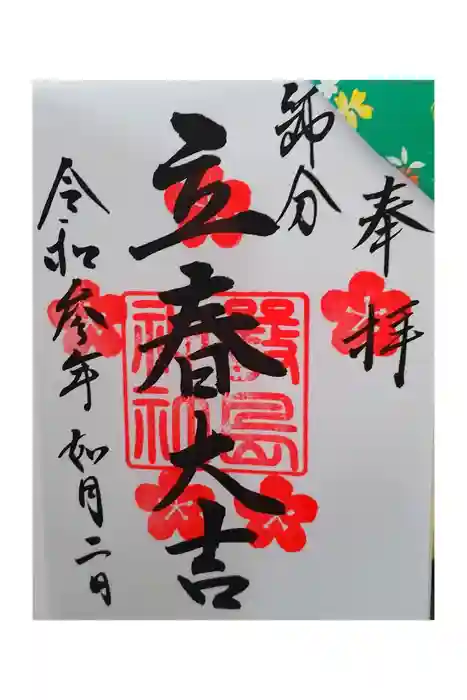 奉拝
節分
立春大吉
厳島
神社
令和参年如月二日